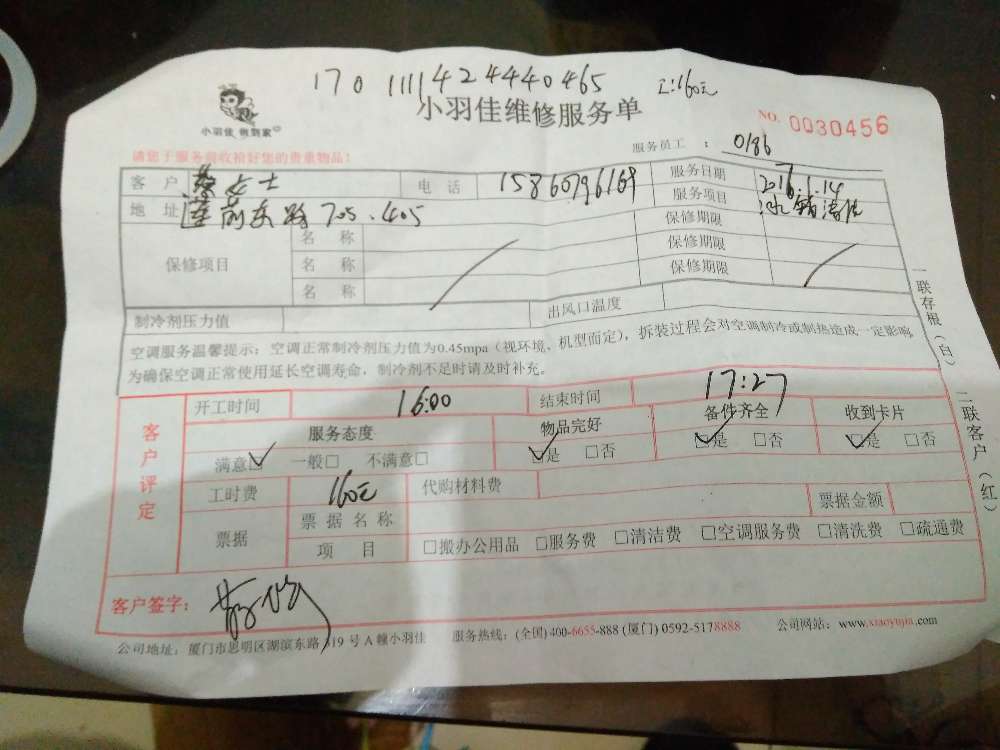 170 1111424440465
工:160元
小羽佳 做到家
小羽佳维修服务单
NO. 0030456
请您于服务前收拾好您的贵重物品!
服务员工 : 0186
客户 蔡女士 电话 15860796169 服务日期 2017.1.14
地址 莲前东路705.405 服务项目 冰箱清洗
保修项目 名称 保修期限
名称 保修期限
名称 保修期限
制冷剂压力值 出风口温度
空调服务温馨提示:空调正常制冷剂压力值为0.45mpa(视环境、机型而定),拆装过程会对空调制冷或制热造成一定影响
为确保空调正常使用延长空调寿命,制冷剂不足时请及时补充。
一联存根(白) 二联客户(红)
客户评定
开工时间 16:00 结束时间 17:27
服务态度 物品完好 备件齐全 收到卡片
满意☑ 一般□ 不满意□ ☑是 □否 ☑是 □否 ☑是 □否
工时费 160元 代购材料费
票据 票据名称 票据金额
项目 □搬办公用品 □服务费 □清洁费 □空调服务费 □清洗费 □疏通费
客户签字:
公司地址:厦门市思明区湖滨东路319号A幢小羽佳 服务热线:(全国)400-6655-888 (厦门)0592-5178888 公司网站:www.xiaoyujia.com